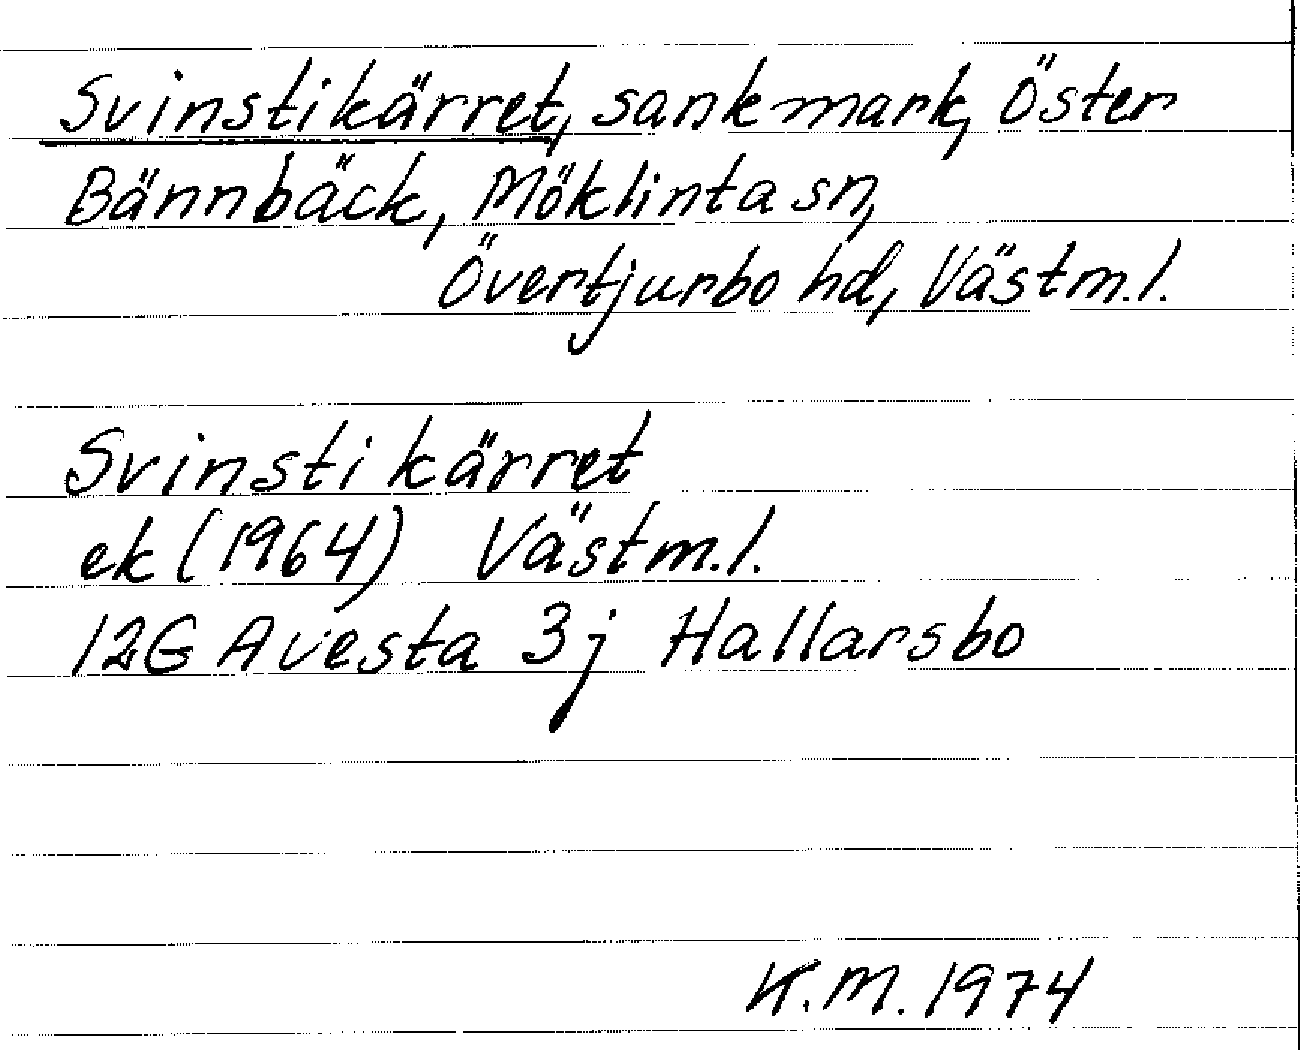 Svinstikärret, sankmark, Öster
Bännbäck, Möklinta sn,
Övertjurbo hd, Västm.l.
Svinstikärret
ek (1964) Västm.l.
12G Avesta 3j Hallarsbo
K.M. 1974